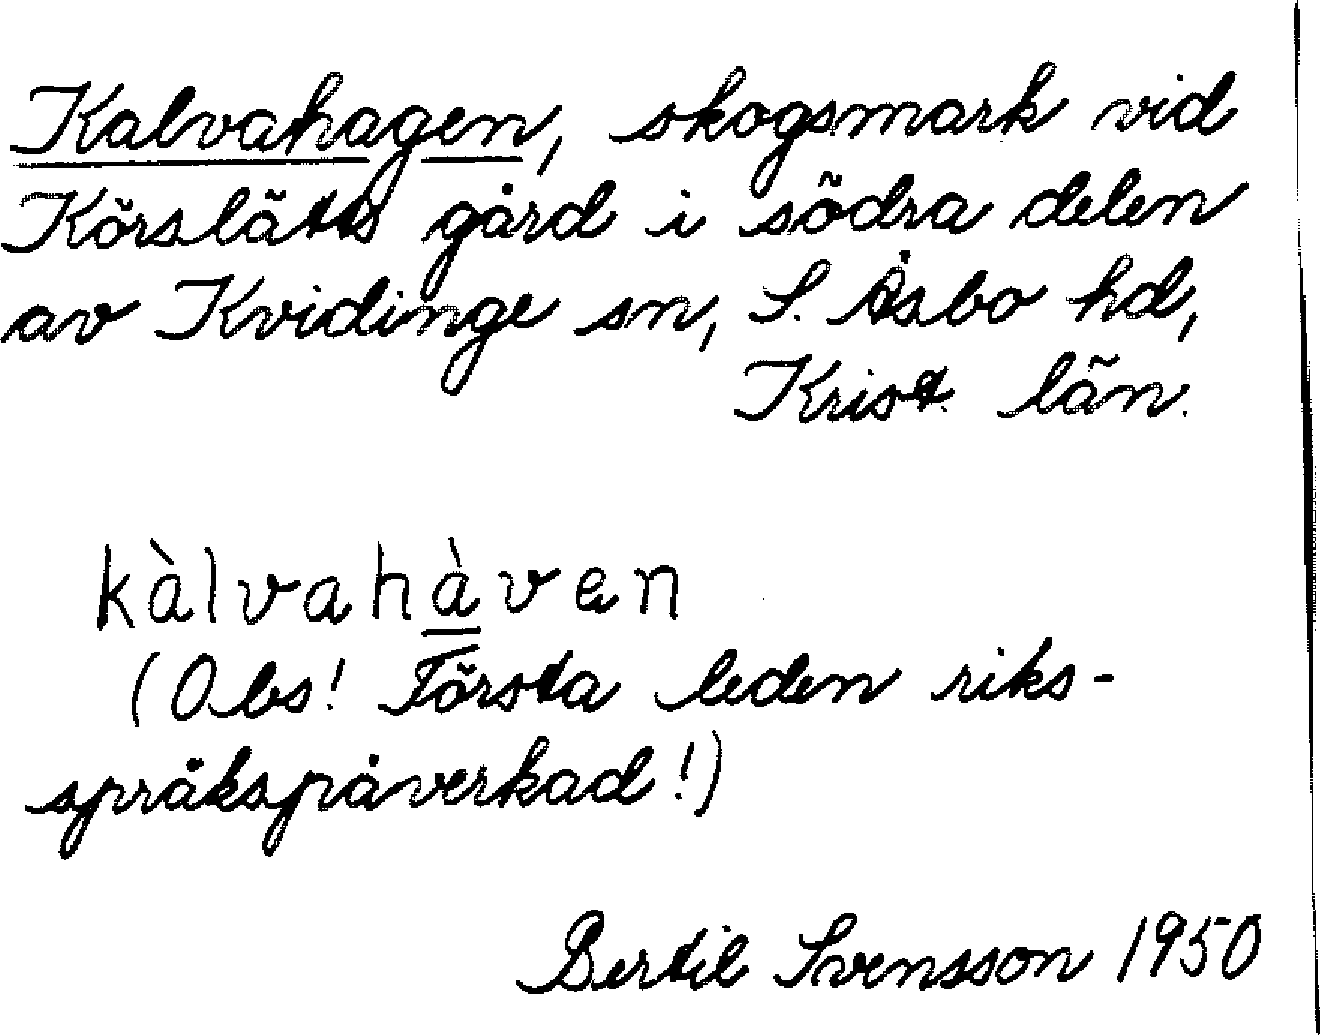 Kalvahagen, skogsmark vid
Körslätts gård i södra delen
av Kvidinge sn, S. Åsbo hd,
Krist. län.
kàlvahàven
(Obs! Första leden riks-
språkspåverkad!)
Bertil Svensson 1950